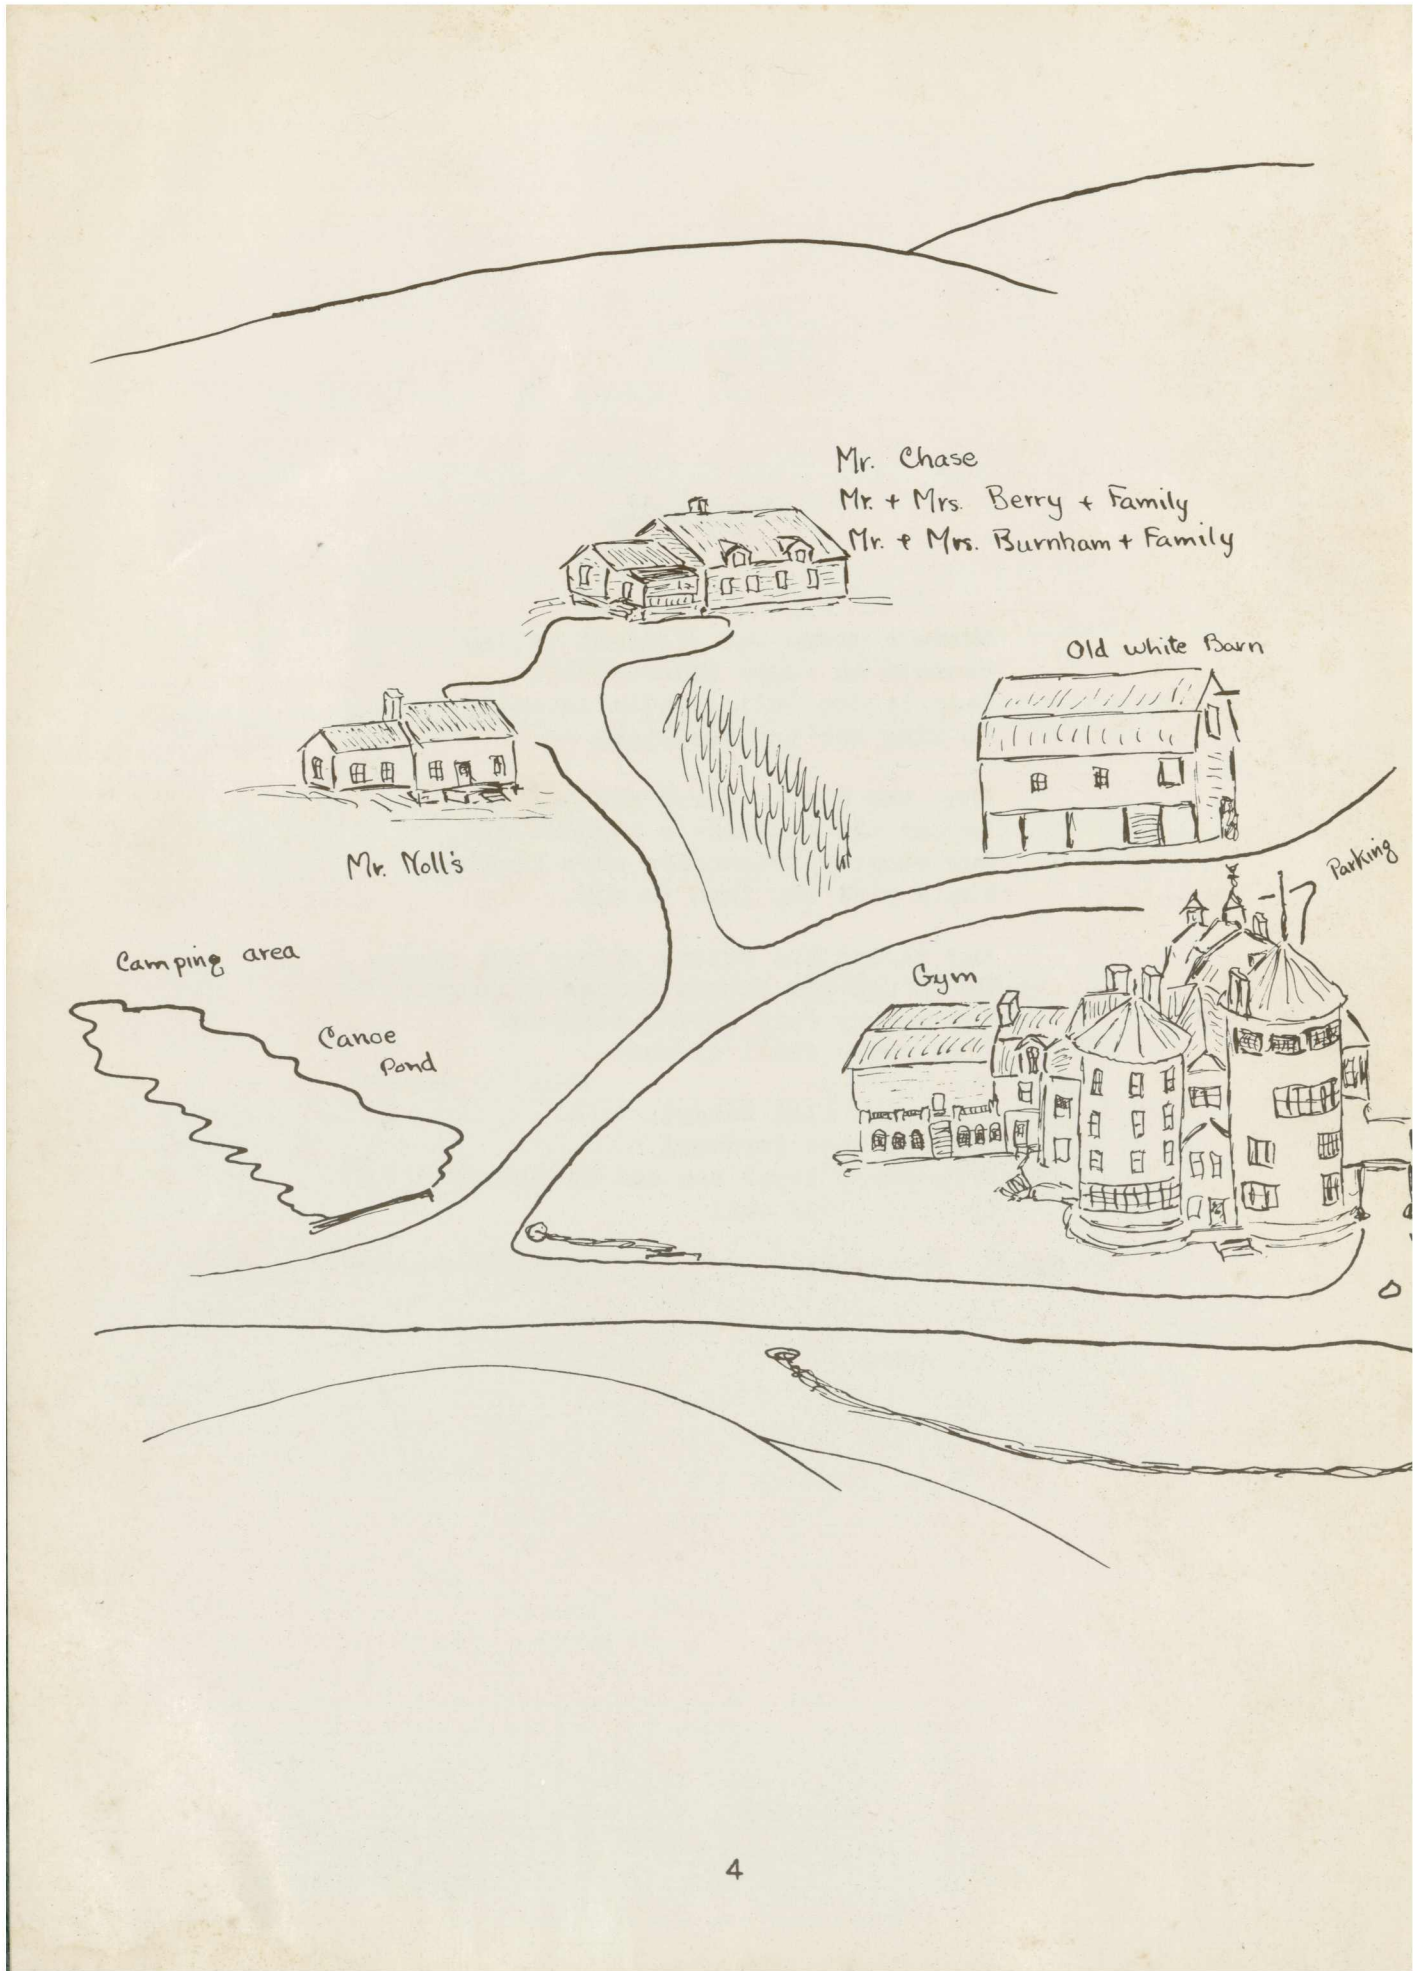 Mr. Chase
Mr. + Mrs. Berry + Family
Mr. + Mrs. Burnham + Family
Old white Barn
Mr. Noll's
Parking
Camping area
Gym
Canoe
Pond
4